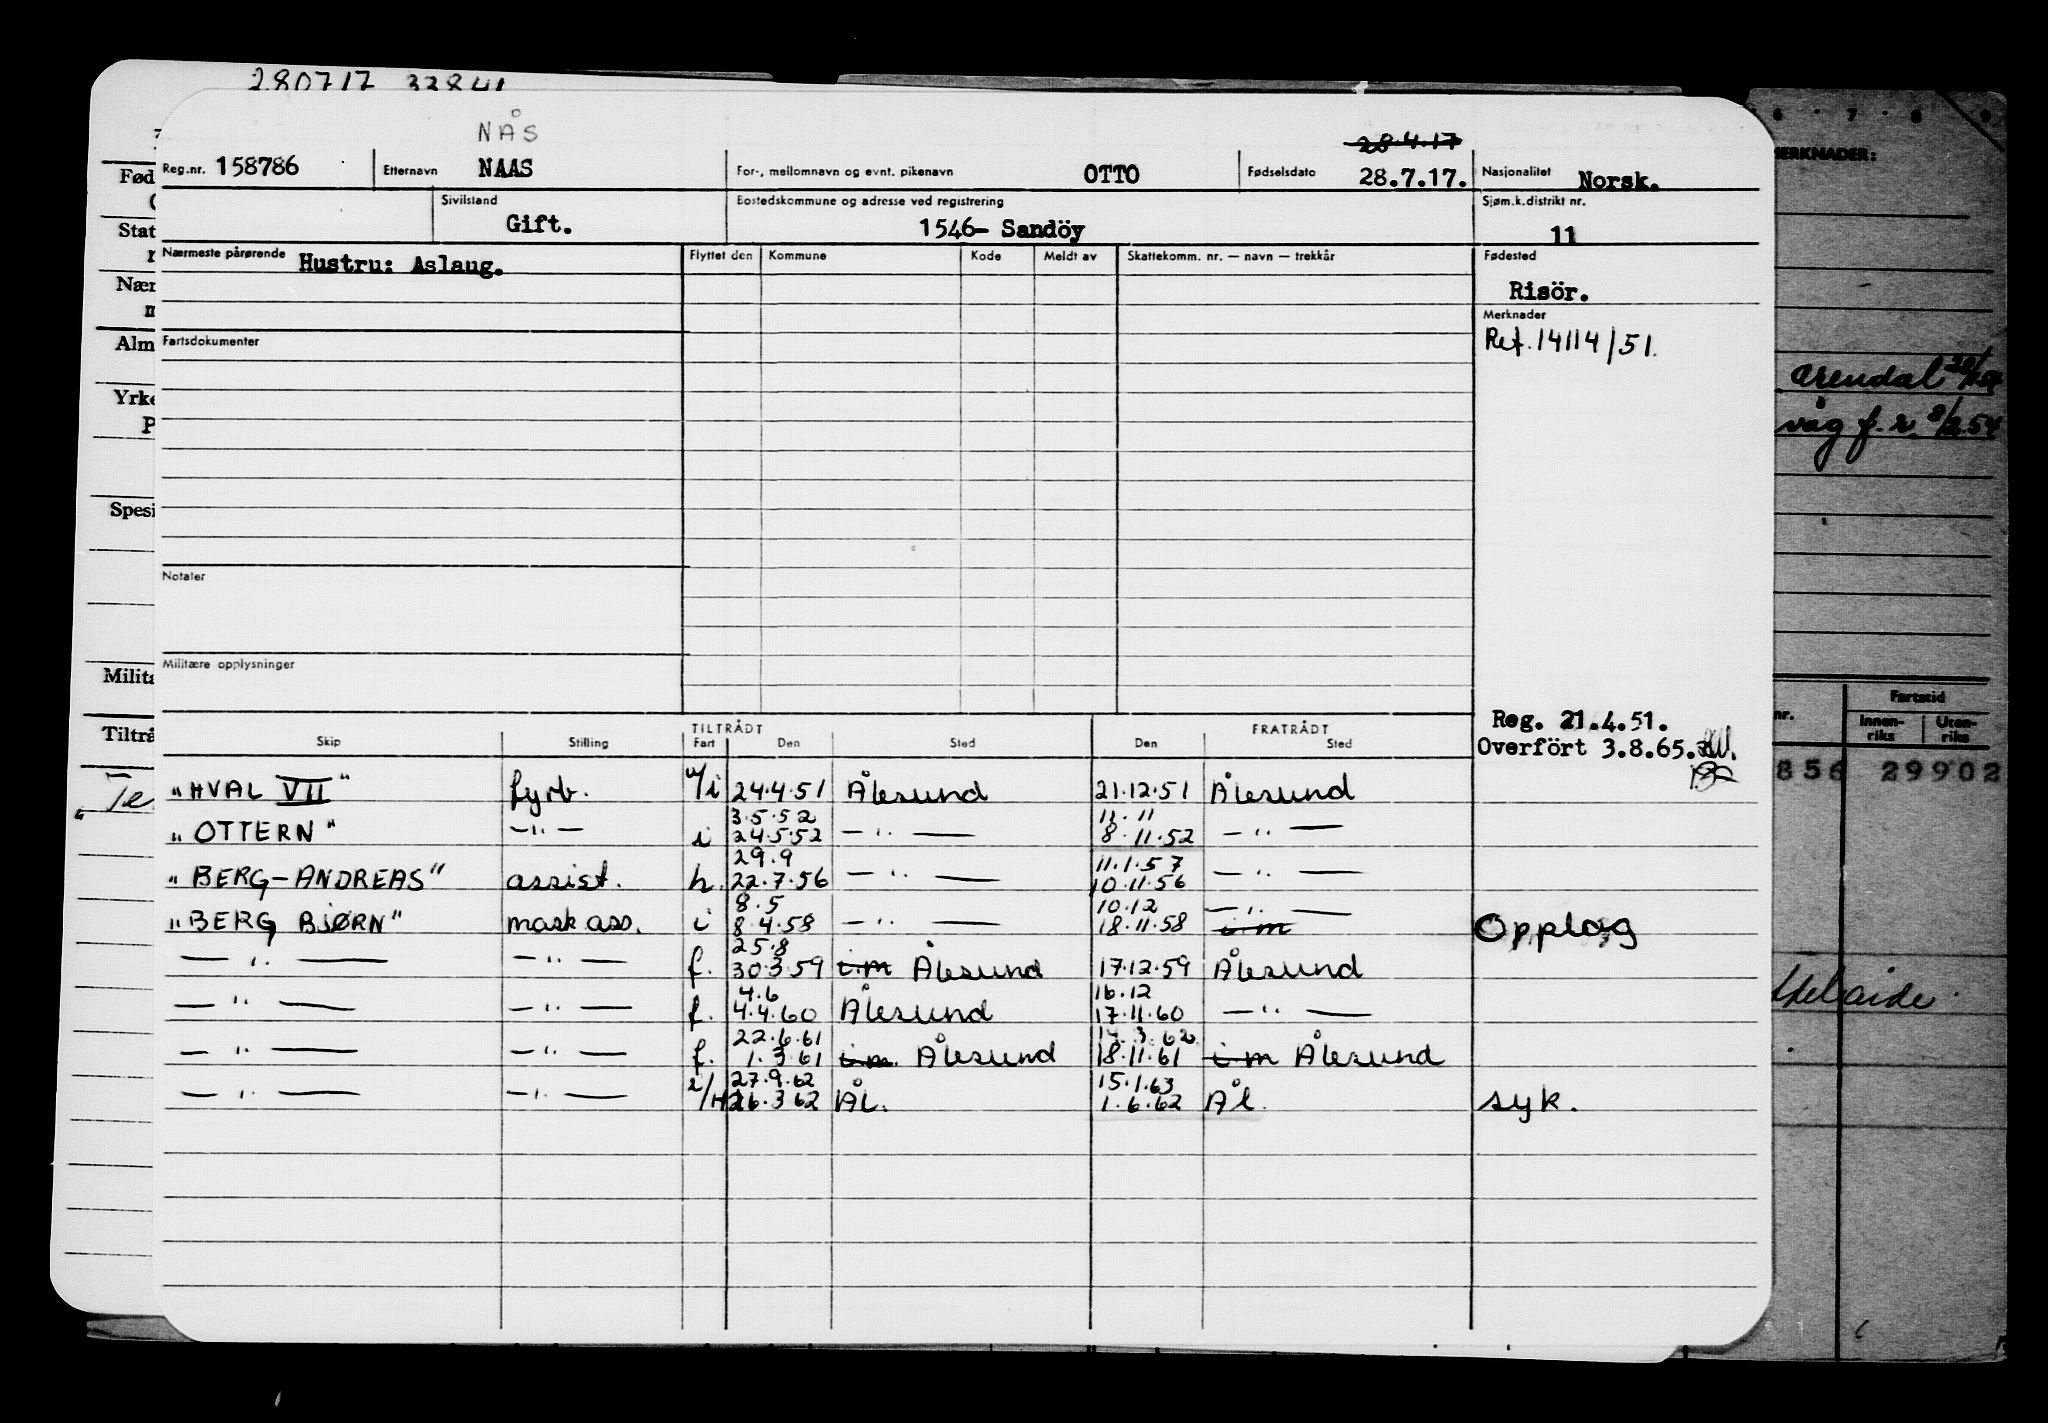 280717 32841
NÅS
28.4.17
Reg.nr. 158786 Etternavn NAAS For-, mellomnavn og evnt. pikenavn OTTO Fødselsdato 28.7.17. Nasjonalitet Norsk.
Sivilstand Gift. Bostedskommune og adresse ved registrering 1546- Sandöy Sjøm.k.distrikt nr. 11
Nærmeste pårørende Hustru: Aslaug. Flyttet den Kommune Kode Meldt av Skattekomm. nr. — navn — trekkår Fødested
Risör.
Merknader
Ref. 14114/51.
Fartsdokumenter
Notater
Militære opplysninger
Reg. 21.4.51.
Overfört 3.8.65.
TILTRÅDT FRATRÅDT
Skip Stilling Fart Den Sted Den Sted
"HVAL VII" fyrb. u/i 24.4.51 Ålesund 21.12.51 Ålesund
3.5.52 11.11
"OTTERN" —"— i 24.5.52 —"— 8.11.52 —"—
29.9 11.1.57
"BERG-ANDREAS" assist. h. 22.7.56 —"— 10.11.56 —"—
8.5 10.12 —"—
"BERG BJØRN" mask ass. i 8.4.58 —"— 18.11.58 i.m Opplag
25.8
—"— —"— f. 30.3.59 i.m Ålesund 17.12.59 Ålesund
4.6 16.12
—"— —"— f. 4.4.60 Ålesund 17.11.60 —"—
22.6.61 14.3.62
—"— —"— f. 1.3.61 i.m. Ålesund 18.11.61 i.m Ålesund
27.9.62 15.1.63
—"— —"— i/H 26.3.62 Ål. 1.6.62 Ål. syk.
Fød
Stat
Nær
Alm
Yrke
P
Spesi
Milita
Tiltrå
"Te
6 · 7 · 8 · 9
MERKNADER:
Arendal
våg f.r. 8/2.54
nr. Fartstid
Innen-riks Uten-riks
856 29902